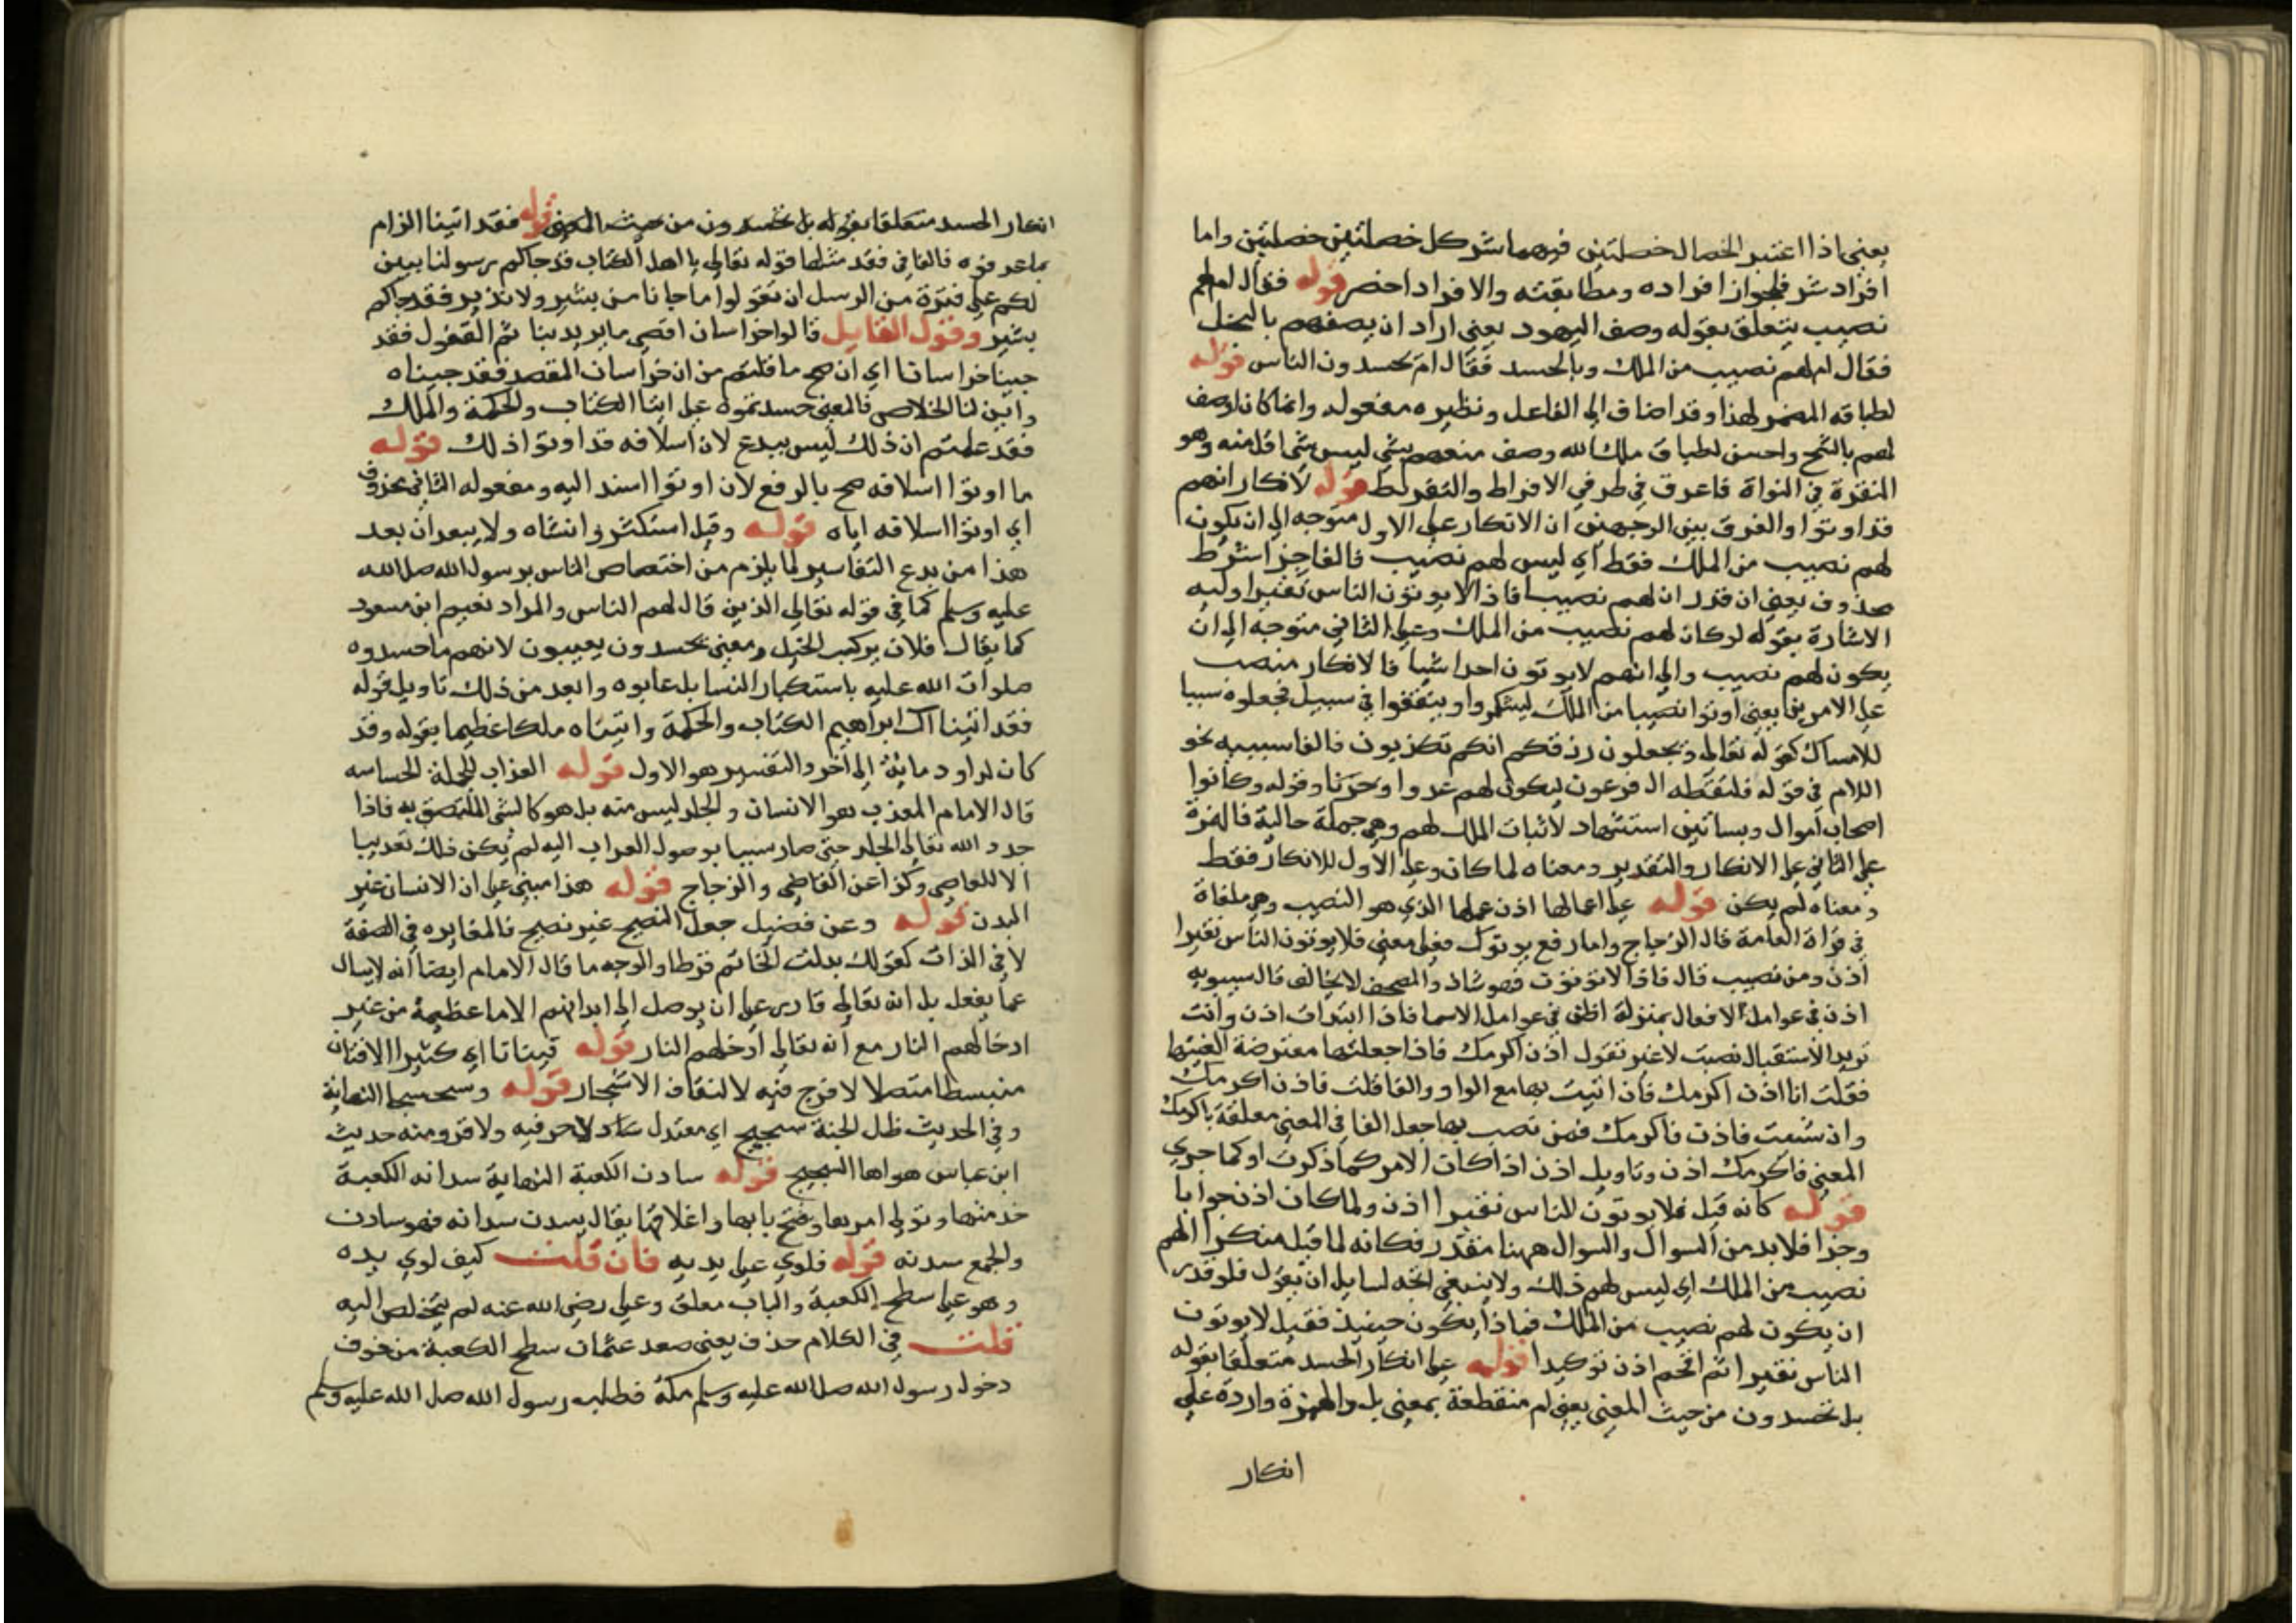 يعنى اذا اعتبر الخصال خصلتين فيهما شر كل خصلتين خصلتين واما
افراد شر فلجواز افراده ومطابقته والافراد احضر قوله فقال ام لهم
نصيب يتعلق بقوله وصف اليهود يعنى اراد ان يصفهم بالبخل
فقال ام لهم نصيب من الملك وبالحسد فقال ام يحسدون الناس قوله
لطباقه المضمر لهذا وقد اضاف الى الفاعل ونظيره مفعوله وانما كان اوصف
لهم بالشح واحسن لطباق ملك الله وصف منعهم بشى ليس شى اقل منه وهو
النقرة في النواة فاعرق في طرفي الافراط والتفريط قوله لانكار انهم
قد اوتوا والفرق بين الوجهين ان الانكار على الاول متوجه الى ان يكون
لهم نصيب من الملك فقط اي ليس لهم نصيب فالفا جزا شرط
محذوف يعني ان قدر ان لهم نصيبا فاذا لا يوتون الناس نقيرا وليه
الاشارة بقوله لو كان لهم نصيب من الملك وعلى الثاني متوجه الى ان
يكون لهم نصيب والى انهم لا يوتون احدا شيا فالانكار منصب
على الامرين يعني اوتوا نصيبا من الملك ليشكروا وينفقوا في سبيل فجعلوه سببا
للامساك كقوله تعالى وتجعلون رزقكم انكم تكذبون فالفا سببيه نحو
اللام في قوله فالتقطه ال فرعون ليكون لهم عدوا وحزنا وقوله وكانوا
اصحاب اموال وبساتين استشهاد لاثبات الملك لهم وهي جملة حالية فالهمزة
على الثاني على الانكار والتقدير ومعناه لما كان وعلى الاول للانكار فقط
ومعناه لم يكن قوله على اعمالها اذن عملها الذي هو النصيب وهي ملغاة
في قراة العامة قال الزجاج واما رفع يوتون فعلى معنى فلا يوتون الناس نقيرا
اذن ومن نصيب قال فاذا لا توتوت فهو شاذ والمصحف لا يخالف قال سيبويه
اذن في عوامل الافعال بمنزلة اظن في عوامل الاسما فاذا ابتدات اذن وانت
تريد الاستقبال نصبت لا غير تقول اذن اكرمك فاذا جعلتها معترضة الغيتها
فقلت انا اذن اكرمك فان اتيت بها مع الواو والفا قلت فاذن اكرمك
وان شئت فاذن فاكرمك فمن نصب بها جعل الفا في المعنى معلقة باكرمك
المعنى فاكرمك اذن وتاويل اذن اذا كان الامر كما ذكرت او كما جرى
قوله كانه قيل فلا يوتون للناس نقيرا اذن ولما كان اذن جوابا
وجزا فلا بد من السوال والسوال ههنا مقدر فكانه لما قيل منكرا الهم
نصيب من الملك اي ليس لهم ذلك ولا ينبغي اتجه لسايل ان يقول فلو قدر
ان يكون لهم نصيب من الملك فماذا يكون حينيذ فقيل لا يوتون
الناس نقيرا ثم اقحم اذن توكيدا قوله على انكار الحسد متعلقا بقوله
بل تحسدون من حيث المعنى يعني ام منقطعة بمعنى بل والهمزة واردة على
انكار
انكار الحسد متعلقا بقوله بل تحسدون من حيث المعنى قوله فقد اتينا الزام
بما عرفوه فالفا في فقد مثلها قوله تعالى يا اهل الكتاب قد جاكم رسولنا يبين
لكم على فترة من الرسل ان تقولوا ما جانا من بشير ولا نذير فقد جاكم
بشير وقول القايل قالوا خراسان اقصى ما يريد بنا ثم القفول فقد
جينا خراسانا اي ان صح ما قلتم من ان خراسان المقصد فقد جيناه
واين لنا الخلاص فالمعنى حسدتموه على ايتا الكتاب والحكمة والملك
فقد علمتم ان ذلك ليس ببدع لان اسلافه قد اوتوا ذلك قوله
ما اوتوا اسلافه صح بالرفع لان اوتوا اسند اليه ومفعوله الثاني محذوف
اي اوتوا اسلافه اياه قوله وقيل استكثروا نساه ولا يبعد ان يعد
هذا من بدع التفاسير لما يلزم من اختصاص الناس برسول الله صلى الله
عليه وسلم كما في قوله تعالى الذين قال لهم الناس والمراد نعيم ابن مسعود
كما يقال فلان يركب الخيل ومعنى يحسدون يعيبون لانهم ما حسدوه
صلوات الله عليه باستكبار النسا بل عابوه وابعد من ذلك تاويل قوله
فقد اتينا ال ابراهيم الكتاب والحكمة واتيناه ملكا عظيما بقوله وقد
كان لداود ماية الى اخر والتفسير هو الاول قوله العذاب للجملة الحساسه
قال الامام المعذب هو الانسان والجلد ليس منه بل هو كالشى الملتصق به فاذا
جدد الله تعالى الجلد حتى صار سببا بوصول العداب اليه لم يكن ذلك تعديبا
الا للعاصى وكذا عن القاضي والزجاج قوله هذا مبني على ان الانسان غير
البدن قوله وعن فضيل جعل النضيج غير نضيج فالمغايره في الصفة
لا في الذات كقولك بدلت الخاتم قرطا والوجه ما قال الامام ايضا انه لا يسال
عما يفعل بل انه تعالى قادر على ان يوصل الى ابدانهم الاما عظيمة من غير
ادخالهم النار مع انه تعالى ادخلهم النار قوله فينانا اي كثيرا الافنان
منبسطا متصلا لا فرج فيه لالتفاف الاشجار قوله وسحسحا النهاية
وفي الحديث ظل الجنة سجسج اي معتدل لا حر فيه ولا قر ومنه حديث
ابن عباس هواها السجسج قوله سادن الكعبة النهاية سدانه الكعبة
خدمتها وتولى امرها وفتح بابها واغلاقها يقال يسدن سدانه فهو سادن
والجمع سدنه قوله فلوي على يديه فان قلت كيف لوي يده
وهو على سطح الكعبة والباب مغلق وعلى رضى الله عنه لم يتخلص اليه
قلت في الكلام حذف يعنى صعد عثمان سطح الكعبة من خوف
دخول رسول الله صلى الله عليه وسلم مكة فطلبه رسول الله صلى الله عليه وسلم